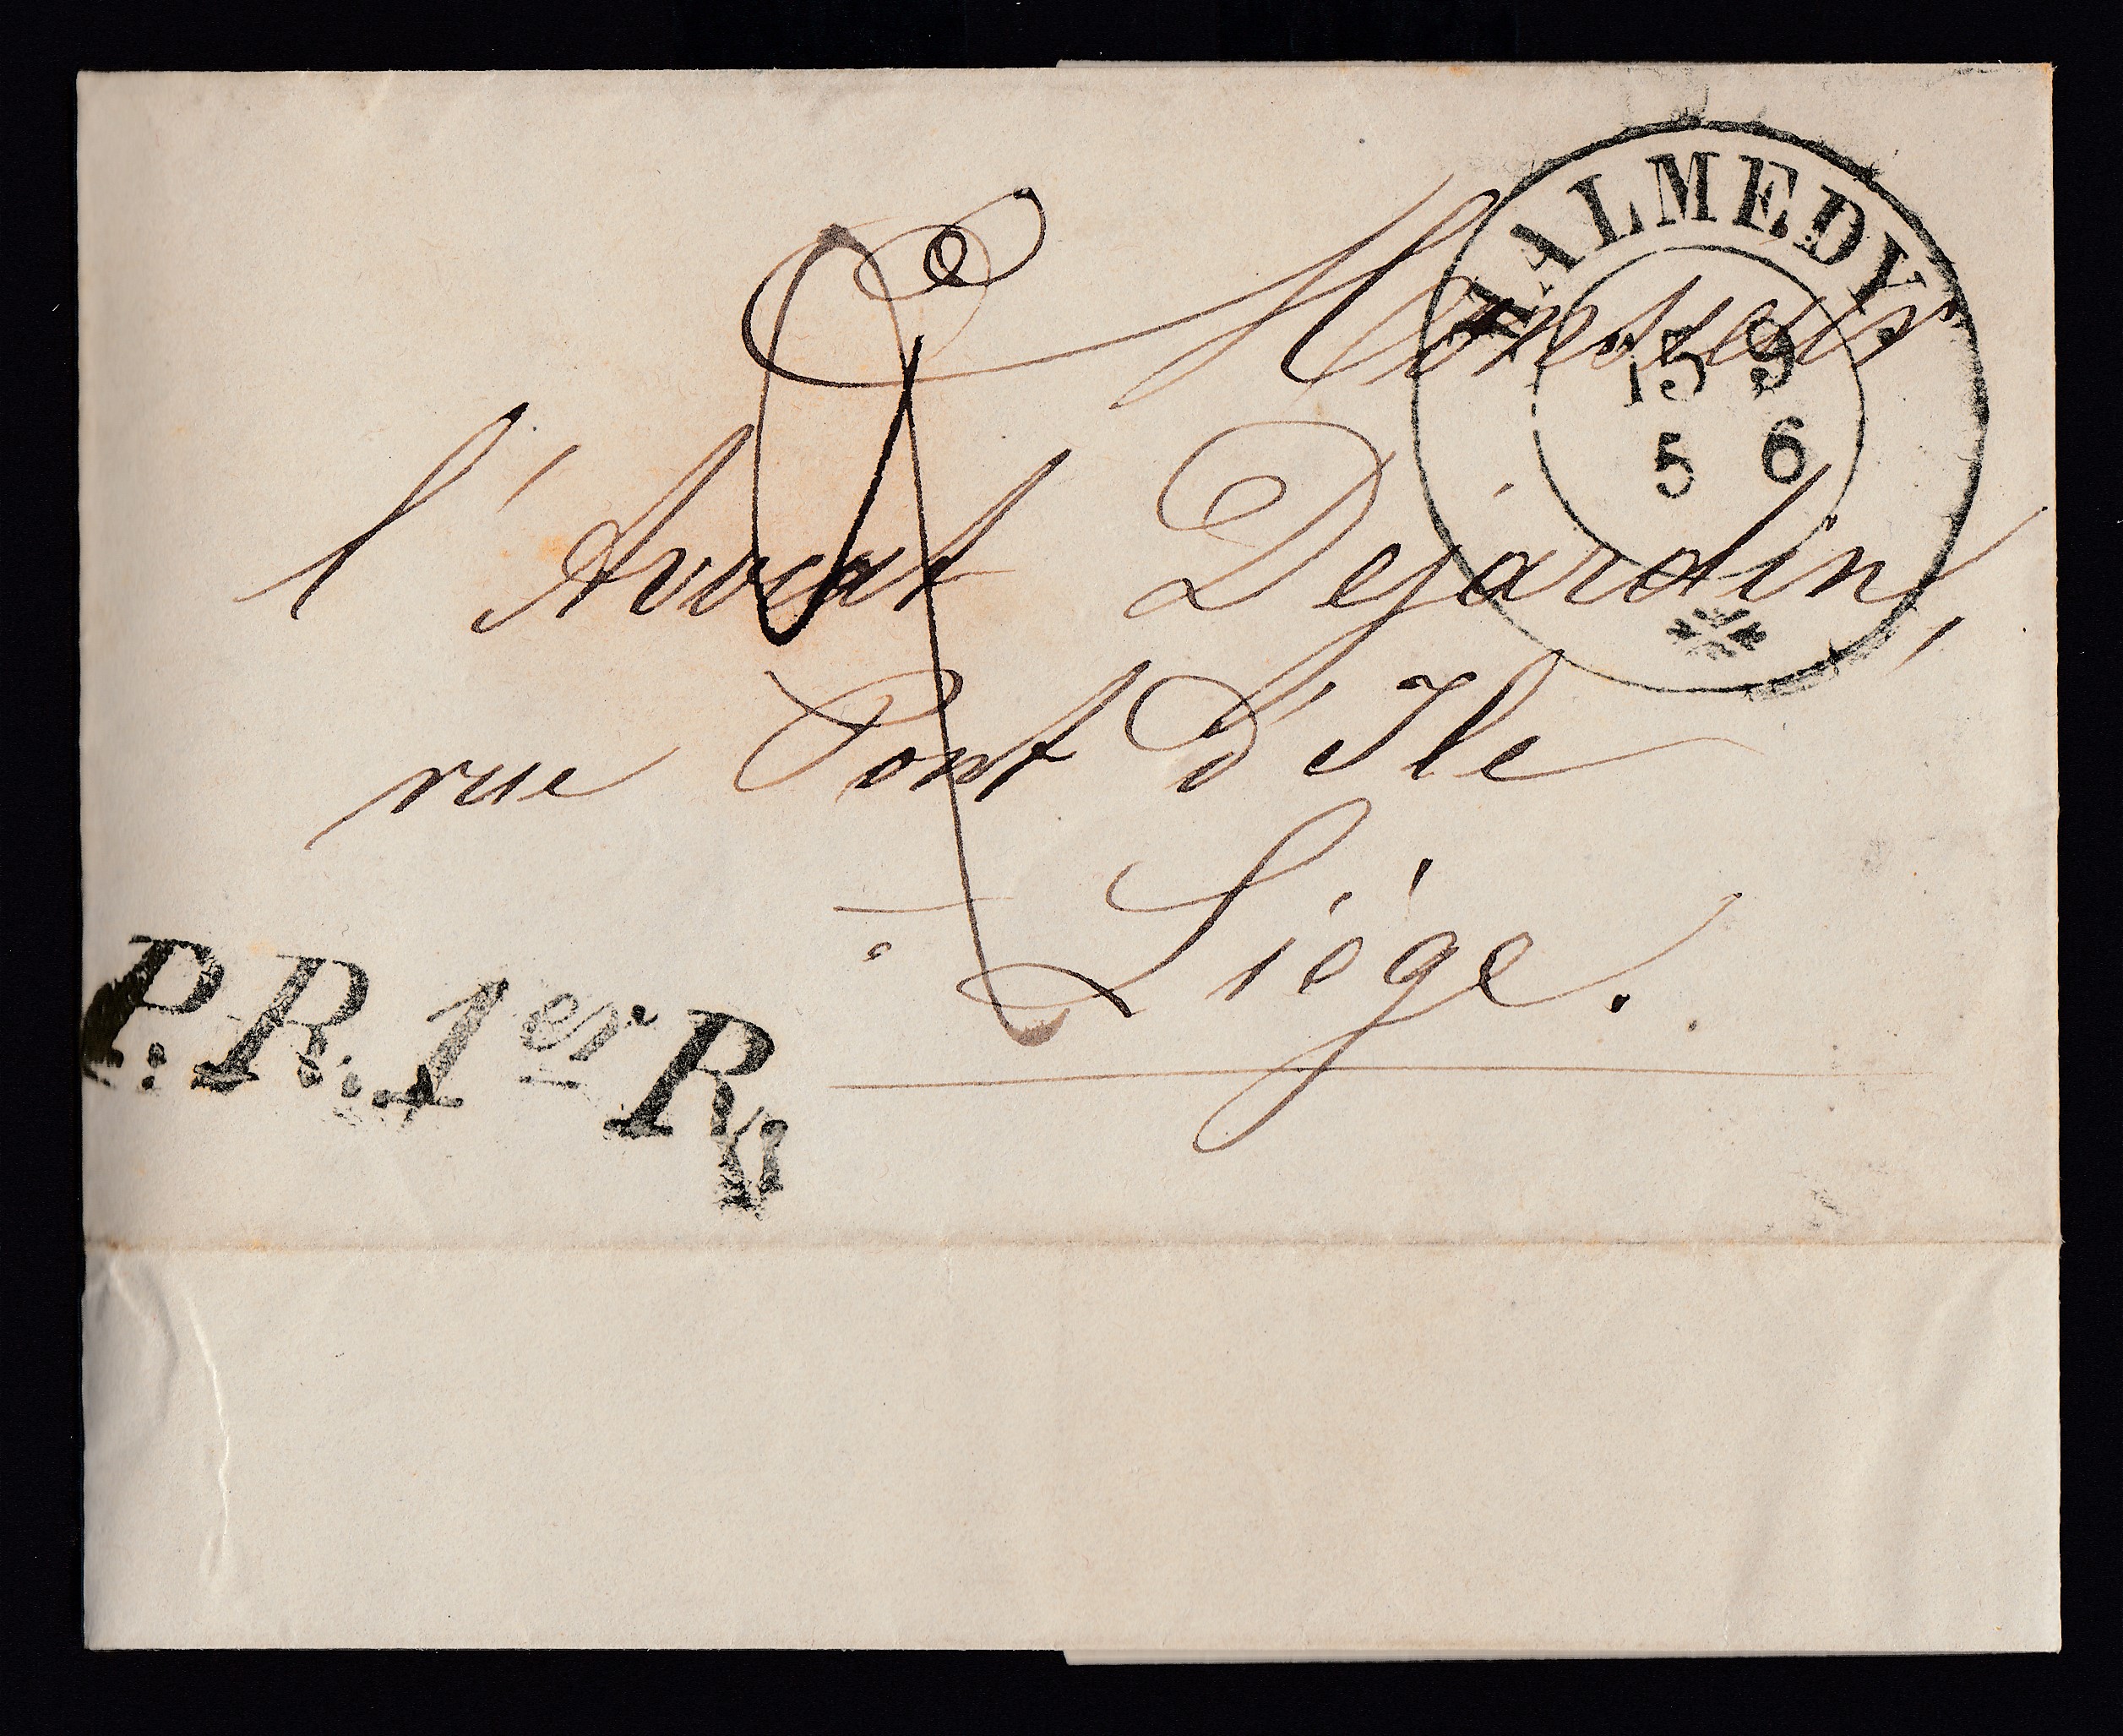 MALMEDY.
15 9
5 6
Monsieur
l'Avocat Dejardin,
rue Pont d'Ile
à Liége.
P.R. 1er R.